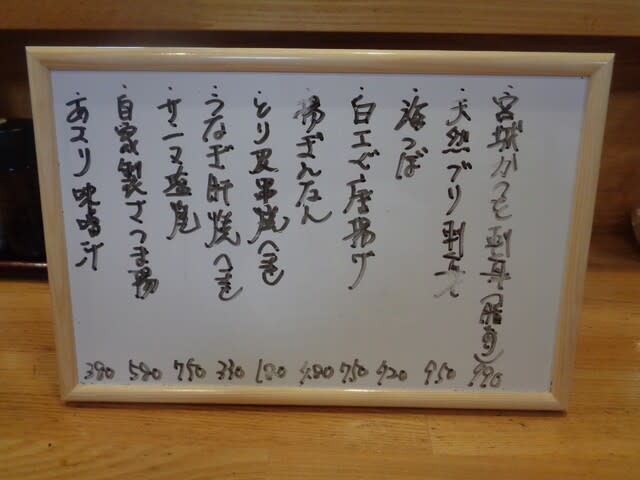 ・宮城かつを刺身(脂有) 990
・天然ブリ刺身 950
・海つぼ 920
・白エビ唐揚げ 750
・揚ぎんなん 480
・とり皮串焼(へを) 180
・うなぎ肝焼(へを) 330
・サンマ塩焼 750
・自家製さつま揚 580
・あさり味噌汁 380